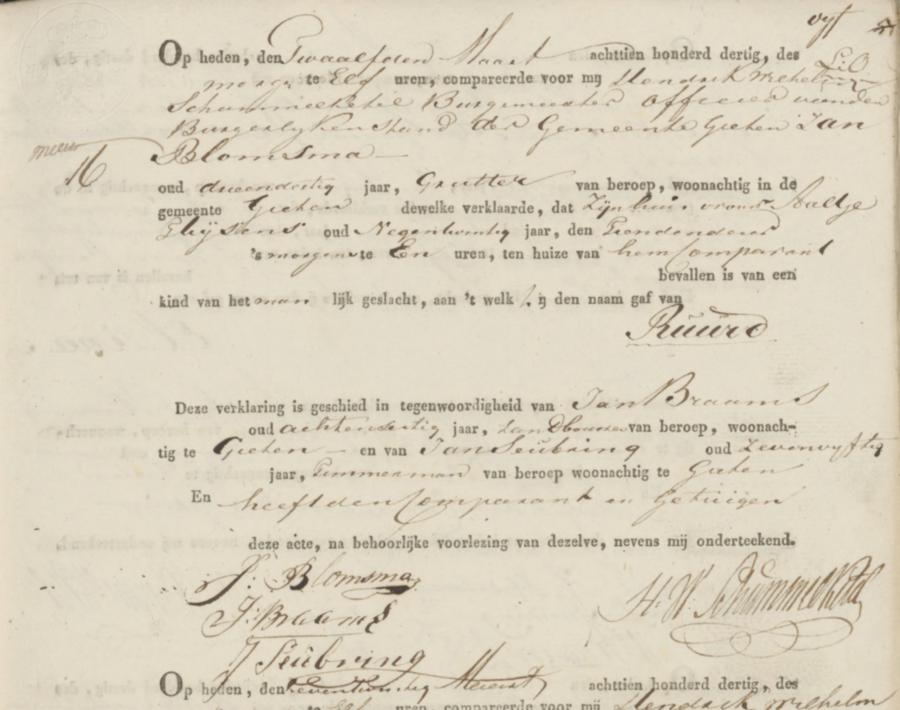 vyf
Op heden, den Twaalfden Maart achttien honderd dertig, des
morgens te Elf uren, compareerde voor mij Hendrik Wilhelm
Schummelketel Burgemeester Officier van den
Burgerlyken Stand der Gemeente Gieten Jan
16
Blomsma —
oud drieendertig jaar, Grutter van beroep, woonachtig in de
gemeente Gieten dewelke verklaarde, dat Zijn huisvrouw Aaltje
oud Negentwintig jaar, den Tienden deser
's morgens te Een uren, ten huize van hem Comparant
bevallen is van een
kind van het man lijk geslacht, aan 't welk hij den naam gaf van
Ruurd
Deze verklaring is geschied in tegenwoordigheid van Jan Braams
oud achtenveertig jaar, Landbouwer van beroep, woonach-
tig te Gieten — en van Jan Seubring oud Zevenvyftig
jaar, Timmerman van beroep woonachtig te Gieten
En heeft den Comparant en Getuigen
deze acte, na behoorlijke voorlezing van dezelve, nevens mij onderteekend.
J: Blomsma
J: Braams
H. W. Schummelketel
J Seubring
Op heden, den Maart achttien honderd dertig, des
te Elf uren, compareerde voor mij Hendrik Wilhelm